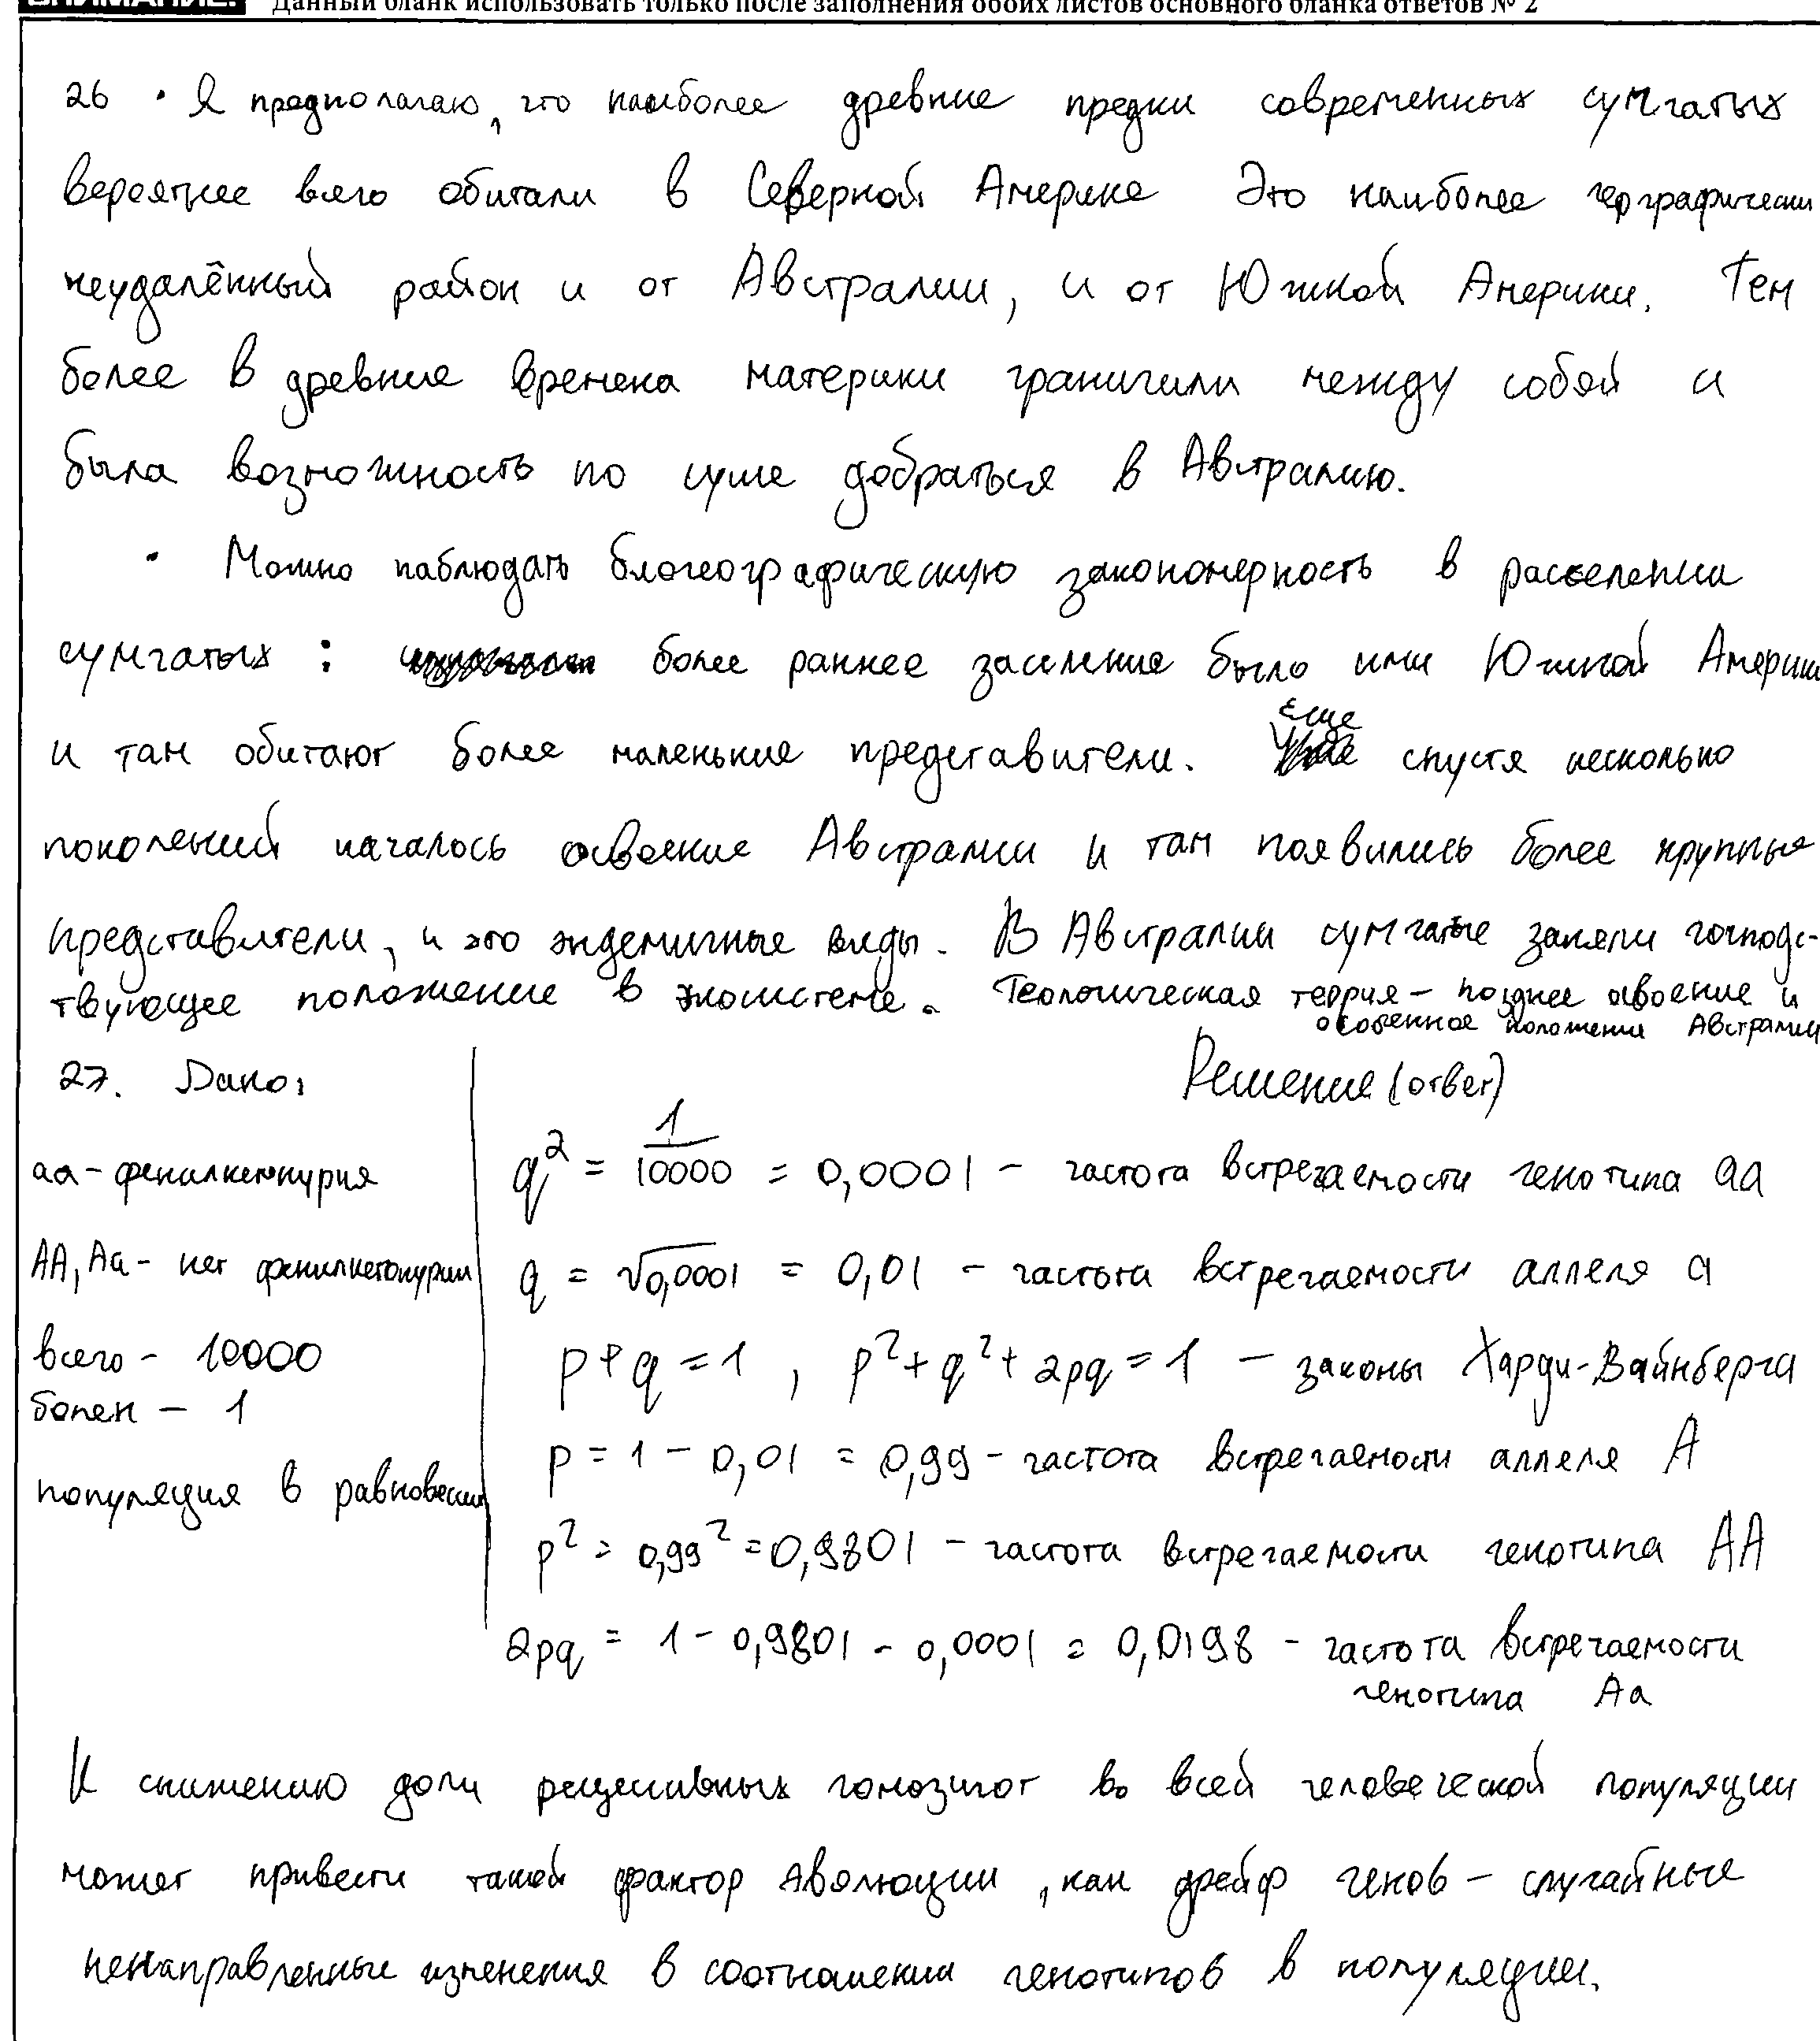 ВНИМАНИЕ! Данный бланк использовать только после заполнения обоих листов основного бланка ответов № 2
26 • Я предполагаю, что наиболее древние предки современных сумчатых
вероятнее всего обитали в Северной Америке Это наиболее географически
неудалённый район и от Австралии, и от Южной Америки. Тем
более в древние времена материки граничили между собой и
была возможность по суше добраться в Австралию.
• Можно наблюдать биогеографическую закономерность в расселении
сумчатых : более раннее заселение было ими Южной Америки
и там обитают более маленькие представители. Еще спустя несколько
поколений началось освоение Австралии и там появились более крупные
представители, и это эндемичные виды. В Австралии сумчатые заняли господс-
твующее положение в экосистеме. Геологическая теория – позднее освоение и
особенное положение Австралии
27. Дано:
Решение (ответ)
аа - фенилкетонурия
АА, Аа - нет фенилкетонурии
всего - 10000
болен – 1
популяция в равновесии
q² = 1/10000 = 0,0001 – частота встречаемости генотипа аа
q = √0,0001 = 0,01 – частота встречаемости аллеля а
p + q = 1 , p² + q² + 2pq = 1 – законы Харди-Вайнберга
p = 1 – 0,01 = 0,99 – частота встречаемости аллеля А
p² = 0,99² = 0,9801 – частота встречаемости генотипа АА
2pq = 1 – 0,9801 – 0,0001 = 0,0198 – частота встречаемости
генотипа Аа
К снижению доли рецессивных гомозигот во всей человеческой популяции
может привести такой фактор эволюции, как дрейф генов – случайные
ненаправленные изменения в соотношении генотипов в популяции.